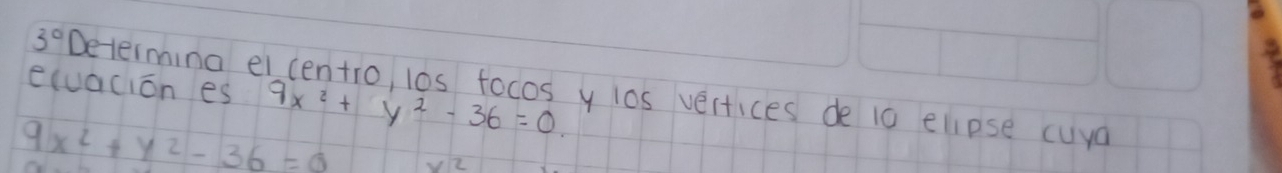 3º Determina el centro, los focos y los vértices de la elipse cuya
ecuación es 9x² + y² - 36 = 0.
9x² + y² - 36 = 0 y²